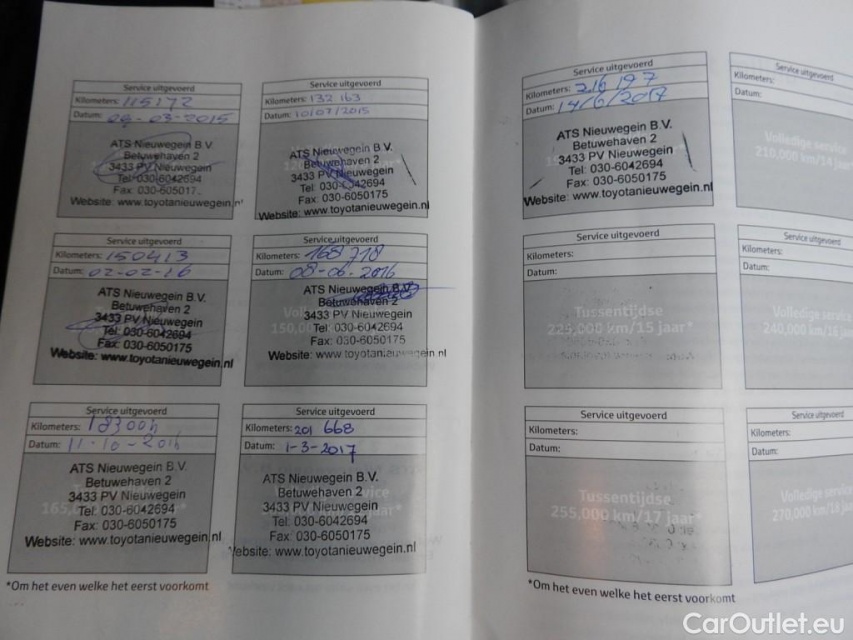 Service uitgevoerd
Kilometers: 115172
Datum: 09-03-2015
ATS Nieuwegein B.V.
Betuwehaven 2
3433 PV Nieuwegein
Tel: 030-6042694
Fax: 030-605017
Website: www.toyotanieuwegein.n
Service uitgevoerd
Kilometers: 132 163
Datum: 10/07/2015
ATS Nieuwegein B.V.
Betuwehaven 2
3433 PV Nieuwegein
Tel: 030-6042694
Fax: 030-6050175
Website: www.toyotanieuwegein.nl
Service uitgevoerd
Kilometers: 150413
Datum: 02-02-16
ATS Nieuwegein B.V.
Betuwehaven 2
3433 PV Nieuwegein
Tel: 030-6042694
Fax: 030-6050175
Website: www.toyotanieuwegein.nl
Service uitgevoerd
Kilometers: 168718
Datum: 08-06-2016
ATS Nieuwegein B.V.
Betuwehaven 2
3433 PV Nieuwegein
150,000
Tel: 030-6042694
Fax: 030-6050175
Website: www.toyotanieuwegein.nl
Service uitgevoerd
Kilometers:
Datum: 11-10-201
ATS Nieuwegein B.V.
Betuwehaven 2
3433 PV Nieuwegein
Tel: 030-6042694
Fax: 030-6050175
Website: www.toyotanieuwegein.nl
Service uitgevoerd
Kilometers: 201 668
Datum: 1-3-2017
ATS Nieuwegein B.V.
Betuwehaven 2
3433 PV Nieuwegein
Tel: 030-6042694
Fax: 030-6050175
Website: www.toyotanieuwegein.nl
*Om het even welke het eerst voorkomt
Service uitgevoerd
Kilometers: 216197
Datum: 14/6/2017
ATS Nieuwegein B.V.
Betuwehaven 2
3433 PV Nieuwegein
Tel: 030-6042694
Fax: 030-6050175
Website: www.toyotanieuwegein.nl
Service uitgevoerd
Kilometers:
Datum:
Volledige service
210,000 km/14 jaar*
Service uitgevoerd
Kilometers:
Datum:
Tussentijdse
225,000 km/15 jaar*
Service uitgevoerd
Kilometers:
Datum:
Volledige service
240,000 km/16
Service uitgevoerd
Kilometers:
Datum:
Tussentijdse
255,000 km/17 jaar*
Service uitgevoerd
Kilometers:
Datum:
Volledige service
270,000 km/18
*Om het even welke het eerst voorkomt
CarOutlet.eu